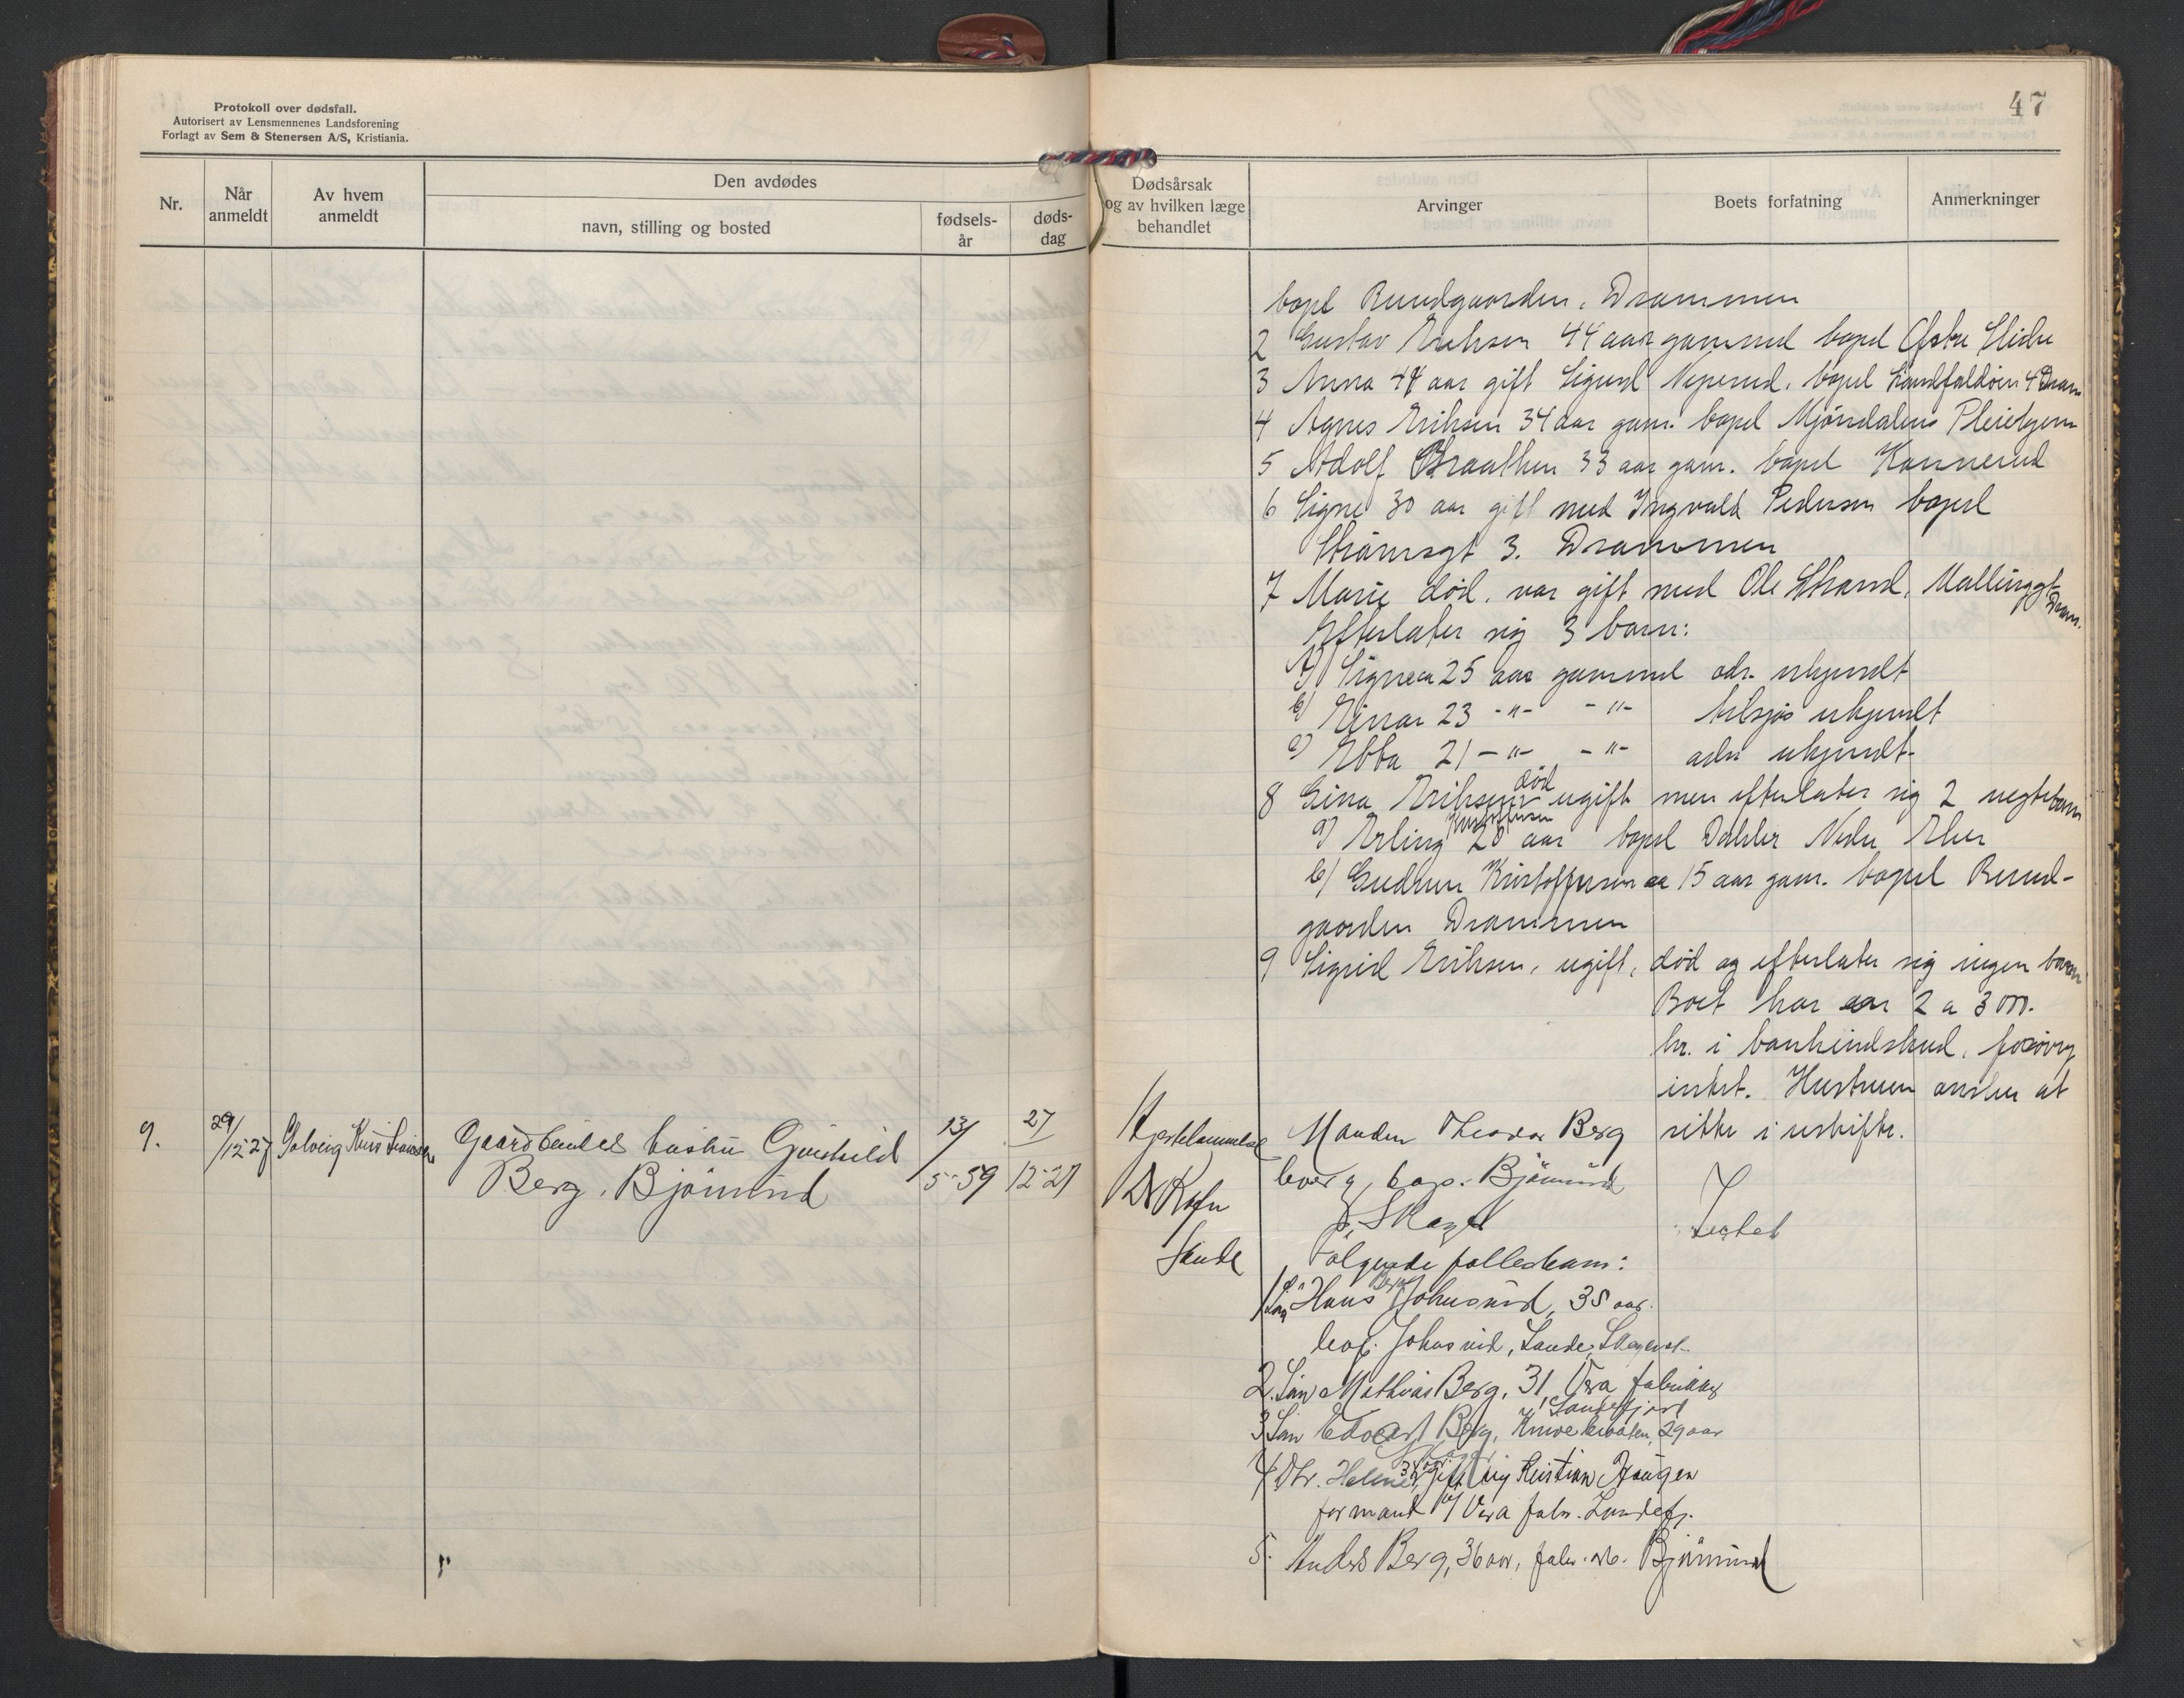 Protokoll over dødsfall.
Autorisert av Lensmennenes Landsforening
Forlagt av Sem & Stenersen A/S, Kristiania.
47
Nr.
Når anmeldt
Av hvem anmeldt
Den avdødes
navn, stilling og bosted
fødsels-år
døds-dag
Dødsårsak og av hvilken læge behandlet
Arvinger
Boets forfatning
Anmerkninger
bopl Rundgaarden, Drammen
2 Gustav Eriksen 44 aar gammel bopel Østre
3 Anna 47 aar gift Sigurd bopel
4 Agnes Eriksen 34 aar gam. bopel Mjøndalens Pleiehjem
5 Adolf Braathen 33 aar gam. bopel Konnerud
6 Signe 30 aar gift med Ingvald Pedersen bopel
Strømsgt 3. Drammen
7 Marie død. var gift med Ole Strand, Mallinggt Dram.
Efterlater sig 3 barn:
a) Signe ca 25 aar gammel adr. ukjendt
b) Einar 23 -"- -"- tilsjøs ukjendt
c) Ebba 21 -"- -"- adr ukjendt
8 Gina Eriksen død ugift men efterlater sig 2 uegte barn
a) Erling Kristoffersen 20 aar bopel Nedre Eker
b) Gudrun Kristoffersen ca 15 aar gam. bopel Rund-
gaarden Drammen
9 Sigrid Eriksen, ugift, død og efterlater sig ingen barn
Boet har ca 2 a 3000.
kr. i bankindskud, forøvrig
intet. Hustruen ønsker at
sitte i uskifte.
9. 29/12-27 Solveig Kristiansen Gaardbruker hustru Gunhild 13/ 27 Hjertelammelse Manden Theodor Berg
Berg, Bjømerud 5-59 12-27 Dr Kofn lever, bop. Bjømerud
p. Skoger Intet
Sande Følgende fellesbarn:
1 Søn Hans Berg Johnsrud, 38 aar.
Johnsrud, Sande,
2. Søn Mathias Berg, 31, Vera fabrikker
Sandefjord
3 Søn Edvart Berg, 29 aar
Skoger
4 Dtr. Helene, gift Kristian Haugen
formand v/ Vera fabr. Sandefj.
5. Anders Berg, 36 aar, fabr. arb. Bjømerud